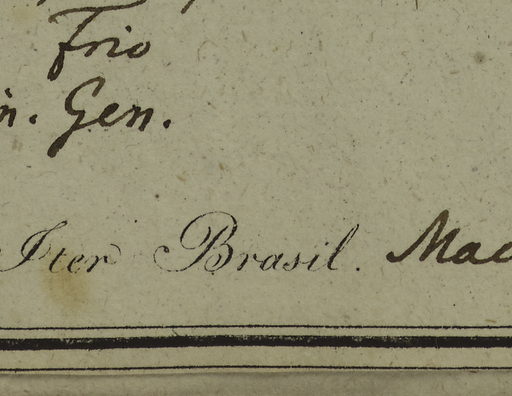 Frio
in. Gen.
Iter Brasil. Mac